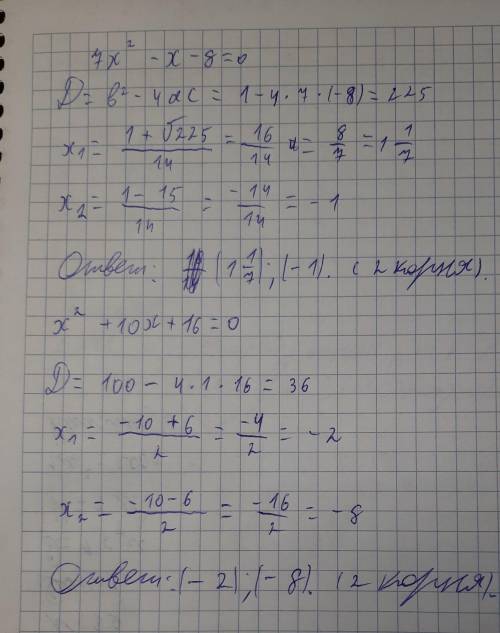 7x² - x - 8 = 0
D = b² - 4ac = 1 - 4 · 7 · (-8) = 225
x₁ = (1 + √225)/14 = 16/14 = 8/7 = 1 1/7
x₂ = (1 - 15)/14 = -14/14 = -1
Ответ: (1 1/7); (-1). (2 корня).
x² + 10x + 16 = 0
D = 100 - 4 · 1 · 16 = 36
x₁ = (-10 + 6)/2 = -4/2 = -2
x₂ = (-10 - 6)/2 = -16/2 = -8
Ответ: (-2); (-8). (2 корня).